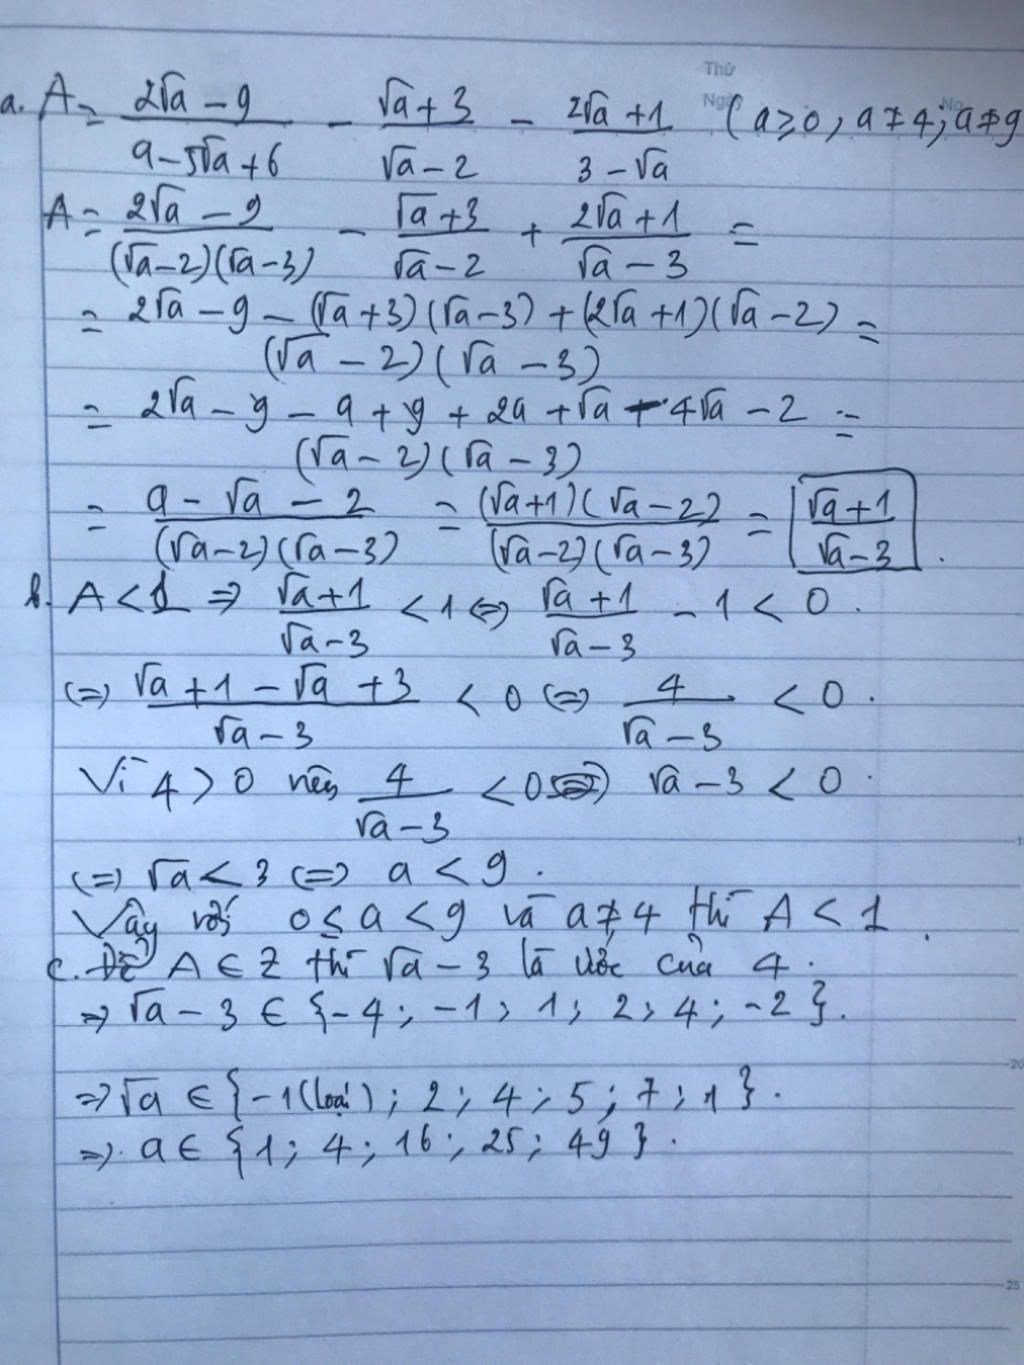 Thứ
Ngày No
a. A = (2√a − 9)/(a − 5√a + 6) − (√a + 3)/(√a − 2) − (2√a + 1)/(3 − √a) (a ≥ 0, a ≠ 4; a ≠ 9
A = (2√a − 9)/((√a − 2)(√a − 3)) − (√a + 3)/(√a − 2) + (2√a + 1)/(√a − 3) =
= (2√a − 9 − (√a + 3)(√a − 3) + (2√a + 1)(√a − 2))/((√a − 2)(√a − 3)) =
= (2√a − 9 − a + 9 + 2a + √a − 4√a − 2)/((√a − 2)(√a − 3)) =
= (a − √a − 2)/((√a − 2)(√a − 3)) = ((√a + 1)(√a − 2))/((√a − 2)(√a − 3)) = (√a + 1)/(√a − 3).
b. A < 1 ⇒ (√a + 1)/(√a − 3) < 1 ⇔ (√a + 1)/(√a − 3) − 1 < 0.
⇔ (√a + 1 − √a + 3)/(√a − 3) < 0 ⇔ 4/(√a − 3) < 0.
Vì 4 > 0 nên 4/(√a − 3) < 0 ⇔ √a − 3 < 0.
⇔ √a < 3 ⇔ a < 9.
Vậy với 0 ≤ a < 9 và a ≠ 4 thì A < 1.
c. Để A ∈ Z thì √a − 3 là ước của 4.
⇒ √a − 3 ∈ {-4; -1; 1; 2; 4; -2}.
⇒ √a ∈ {-1(loại); 2; 4; 5; 7; 1}.
⇒ a ∈ {1; 4; 16; 25; 49}.
20
25